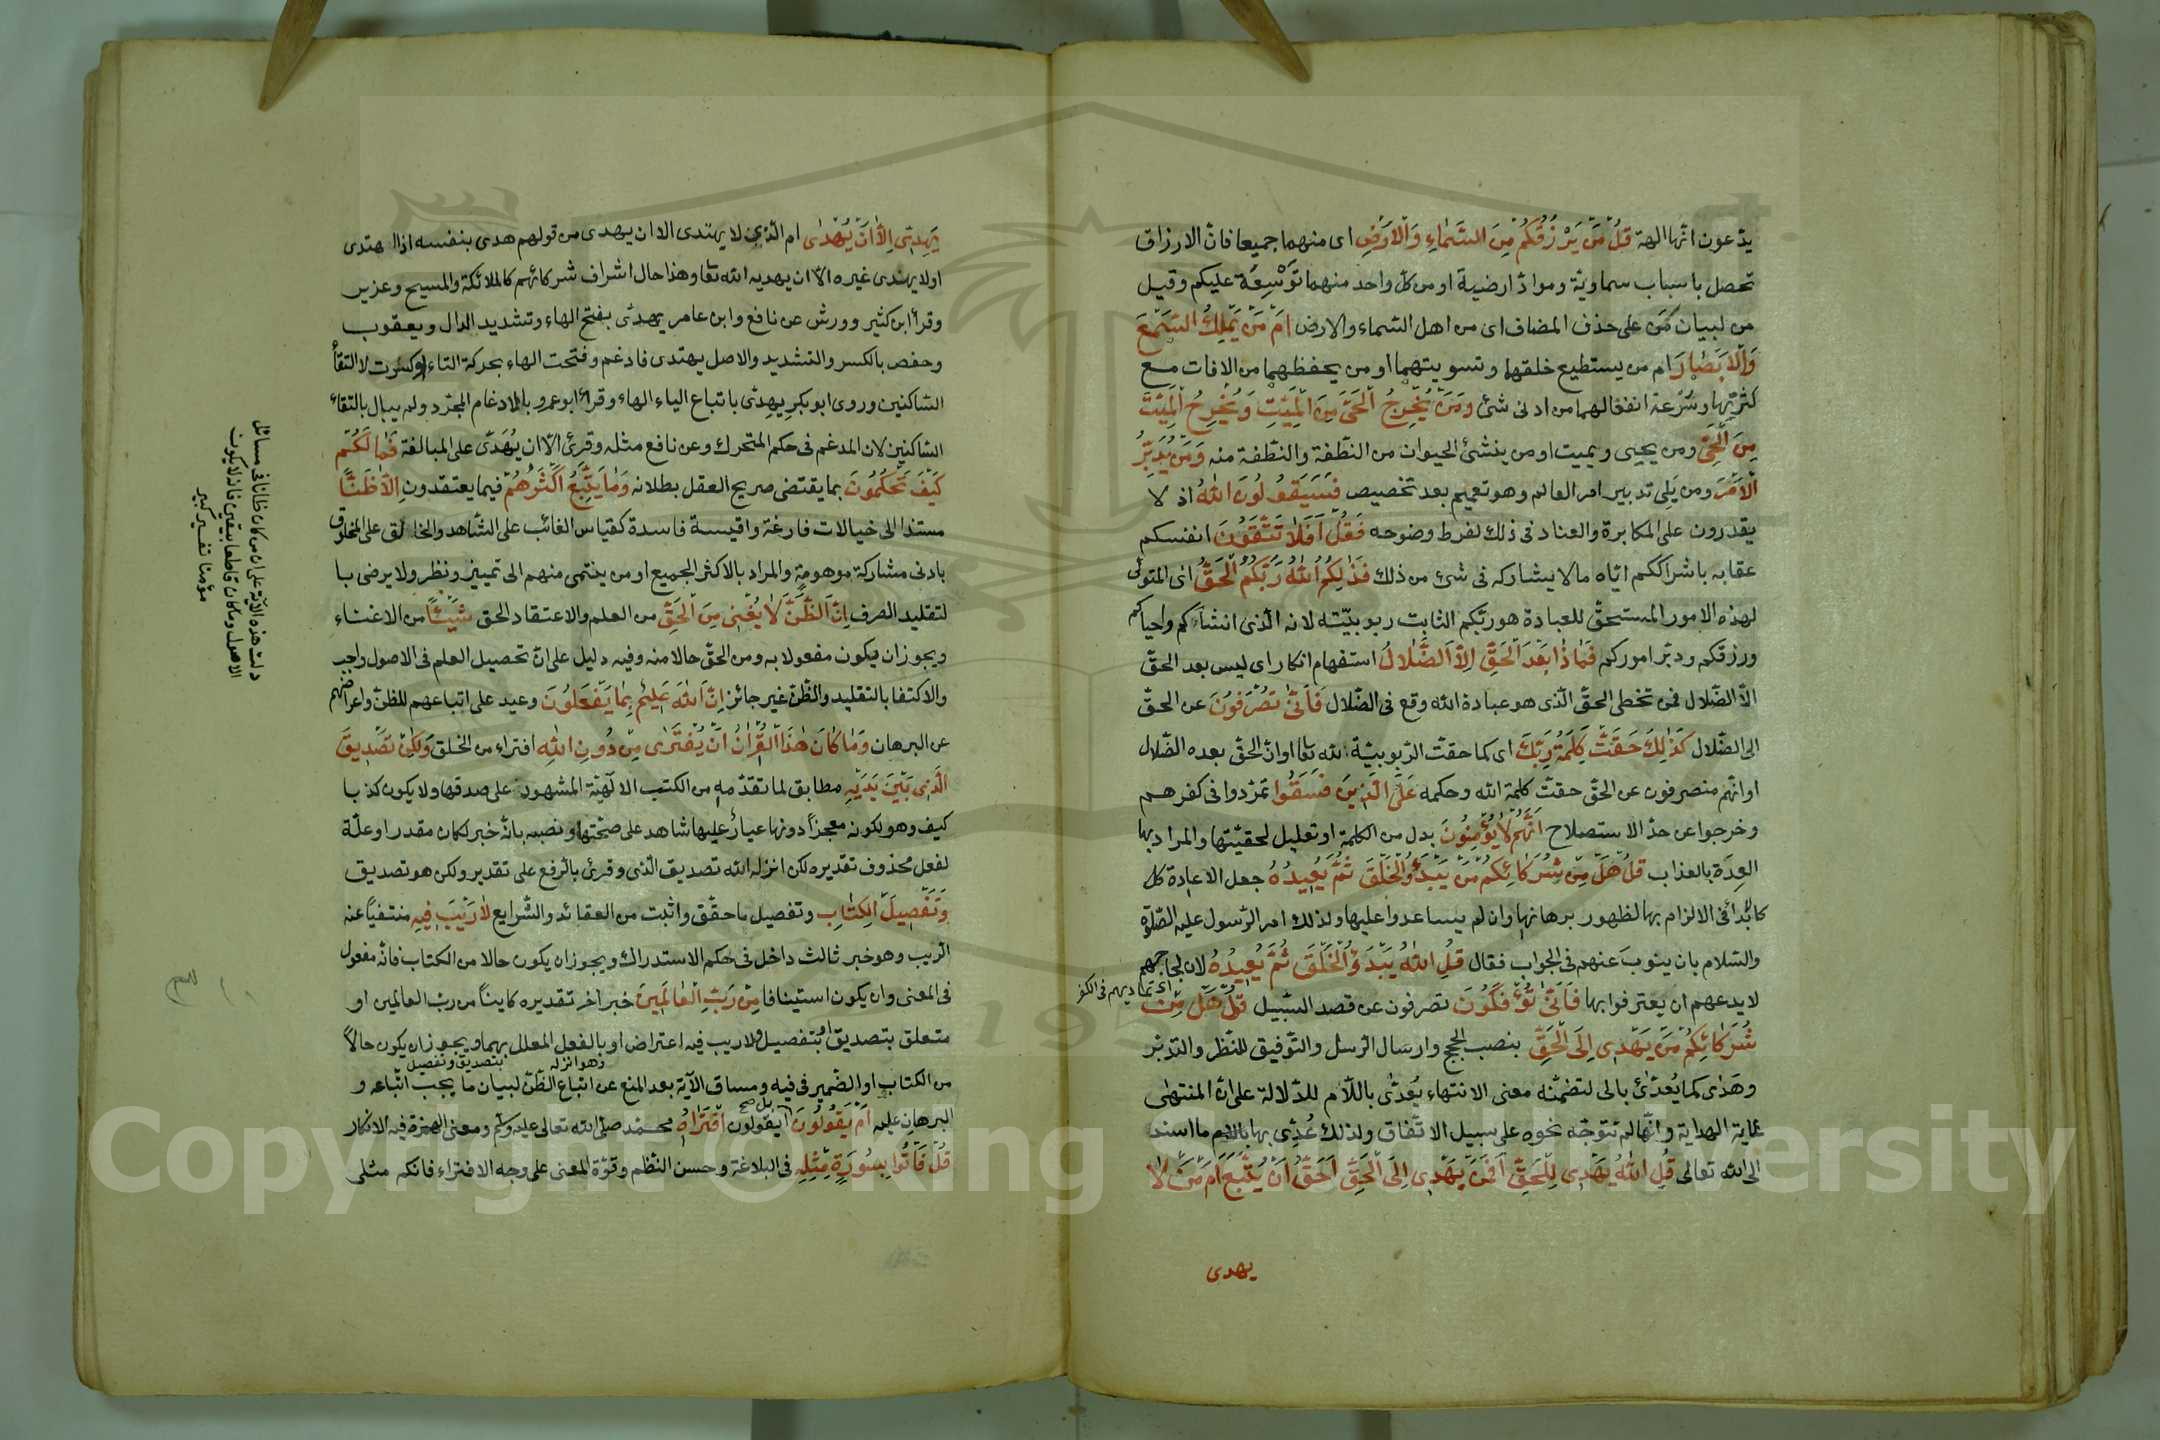 يدّعون انّها الهة قُلْ مَنْ يَرْزُقُكُمْ مِنَ السَّمَاءِ وَالْاَرْضِ اى منهما جميعا فان الارزاق
تحصل باسباب سماويّة وموادّ ارضية او من كل واحد منهما تَوْسِعَة عليكم وقيل
من لبيان مَن على حذف المضاف اى من اهل السّماء والارض اَمْ مَنْ يَمْلِكُ السَّمْعَ
وَالْاَبْصَارَ ام من يستطيع خلقهما وتسويتهما او من يحفظهما من الافات مع
كثرتها وسُرْعة انفعالهما من ادنى شئ وَمَنْ يُخْرِجُ الْحَىَّ مِنَ الْمَيِّتِ وَيُخْرِجُ الْمَيِّتَ
مِنَ الْحَىِّ ومن يحيى ويميت او من ينشئ الحيوان من النّطفة والنّطفة منه وَمَنْ يُدَبِّرُ
الْاَمْرَ ومن يَلِى تدبير امر العالم وهو تعميم بعد تخصيص فَسَيَقُولُونَ اللهُ اذ لا
يقدرون على المكابرة والعناد فى ذلك لفرط وضوحه فَقُلْ اَفَلَا تَتَّقُونَ انفسكم
عقابه باشراككم ايّاه مالا يشاركه فى شئ من ذلك فَذٰلِكُمُ اللهُ رَبُّكُمُ الْحَقُّ اى المتولّى
لهذه الامور المستحقّ للعبادة هو ربّكم الثابت ربوبيّته لانه الّذى انشاءكم واحياكم
ورزقكم ودبّر اموركم فَمَاذَا بَعْدَ الْحَقِّ اِلَّا الضَّلَالُ استفهام انكار اى ليس بعد الحقّ
الّا الضّلال فمن تخطى الحقّ الّذى هو عبادة الله وقع فى الضّلال فَاَنّٰى تُصْرَفُونَ عن الحقّ
الى الضّلال كَذٰلِكَ حَقَّتْ كَلِمَةُ رَبِّكَ اى كما حقّت الرّبوبيّة لله تعا او انّ الحقّ بعده الضّلال
او انّهم منصرفون عن الحقّ حقّت كلمة الله وحكمه عَلَى الَّذِينَ فَسَقُوا تمرّدوا فى كفرهم
وخرجوا عن حدّ الاستصلاح اَنَّهُمْ لَا يُؤْمِنُونَ بدل من الكلمة او تعليل لحقيّتها والمراد بها
العِدَة بالعذاب قُلْ هَلْ مِنْ شُرَكَائِكُمْ مَنْ يَبْدَؤُ الْخَلْقَ ثُمَّ يُعِيدُهُ جعل الاعادة كل
كابْدا فى الالزام بها لظهور برهانها وان لم يساعدوا عليها ولذلك امر الرّسول عليه الصّلوة
والسّلام بان ينوبَ عنهم فى الجواب فقال قُلِ اللهُ يَبْدَؤُ الْخَلْقَ ثُمَّ يُعِيدُهُ لان لجاجهم
اى تماديهم فى الكفر
لا يدعهم ان يعترفوا بها فَاَنّٰى تُؤْفَكُونَ تصرفون عن قصد السّبيل قُلْ هَلْ مِنْ
شُرَكَائِكُمْ مَنْ يَهْدِى اِلَى الْحَقِّ بنصب الحجج وارسال الرّسل والتّوفيق للنّظر والتدبّر
وهَدٰى كما يُعدّٰى بالى لتضمّنه معنى الانتهاء يُعدّٰى باللّام للدّلالة على انّ المنتهٰى
غاية الهداية وانّها لم تتوجّه نحوه على سبيل الاتّفاق ولذلك عُدِّى بها باللام ما اسند
الى الله تعالى قُلِ اللهُ يَهْدِى لِلْحَقِّ اَفَمَنْ يَهْدِى اِلَى الْحَقِّ اَحَقُّ اَنْ يُتَّبَعَ اَمْ مَنْ لَا
يهدى
يَهِدِّى اِلَّا اَنْ يُهْدٰى ام الّذى لا يهتدى الا ان يهدى من قولهم هدى بنفسه اذا اهتدى
او لا يهدى غيره الّا ان يهديه الله تعا وهذا حال اشراف شركائهم كالملائكة والمسيح وعزير
وقرأ ابن كثير وورش عن نافع وابن عامر يهدّى بفتح الهاء وتشديد الدال ويعقوب
وحفص بالكسر والتشديد والاصل يهتدى فادغم وفتحت الهاء بحركة التاء او كسرت لالتقأ
السّاكنين وروى ابوبكر يهدّى باتباع الياء الهاء وقرأ ابو عمرو بالادغام المجرّد ولم يبال بالتقاء
السّاكنين لان المدغم فى حكم المتحرك وعن نافع مثله وقرئ الّا ان يُهَدّى على المبالغة فَمَا لَكُمْ
كَيْفَ تَحْكُمُونَ بما يقتضى صريح العقل بطلانه وَمَا يَتَّبِعُ اَكْثَرُهُمْ فيما يعتقدون اِلَّا ظَنًّا
مستندا الى خيالات فارغة واقيسة فاسدة كقياس الغائب على الشّاهد والخالق على المخلوق
بادنى مشاركة موهومة والمراد بالاكثر الجميع او من ينتمى منهم الى تمييز ونظر ولا يرضى با
لتقليد الصرف اِنَّ الظَّنَّ لَا يُغْنِى مِنَ الْحَقِّ من العلم والاعتقاد الحق شَيْئًا من الاغناء
ويجوز ان يكون مفعولا به ومن الحقّ حالا منه وفيه دليل على انّ تحصيل العلم فى الاصول واجب
والاكتفا بالتقليد والظّنّ غير جائز اِنَّ اللهَ عَلِيمٌ بِمَا يَفْعَلُونَ وعيد على اتباعهم للظنّ واعراضهم
عن البرهان وَمَا كَانَ هٰذَا الْقُرْاٰنُ اَنْ يُفْتَرٰى مِنْ دُونِ اللهِ افتراء من الخلق وَلٰكِنْ تَصْدِيقَ
الَّذِى بَيْنَ يَدَيْهِ مطابق لما تقدّمه من الكتب الالٰهيّة المشهود على صدقها ولا يكون كذبا
كيف وهو لكونه معجزاً دونها عيارٌ عليها شاهد على صحّتها ونصبه بانّه خبر لكان مقدرا وعلّة
لفعل محذوف تقديره لكن انزله الله تصديق الّذى وقرئ بالرّفع على تقدير ولكن هو تصديق
وَتَفْصِيلَ الْكِتَابِ وتفصيل ما حقّق واثبت من العقائد والشّرايع لَا رَيْبَ فِيهِ منتفيًا عنه
الرّيب وهو خبر ثالث داخل فى حكم الاستدراك ويجوز ان يكون حالا من الكتاب فانّه مفعول
فى المعنى وان يكون استينافا مِنْ رَبِّ الْعَالَمِينَ خبر اخر تقديره كاينًا من رب العالمين او
متعلق بتصديق او بتفصيل ولا ريب فيه اعتراض او بالفعل المعلل بهما ويجوز ان يكون حالاً
وهو انزله بتصديق وتفصيل
من الكتاب او الضّمير فى فيه ومساق الآية بعد المنع عن اتباع الظّنّ لبيان ما يجب اتّباعه و
البرهان عليه اَمْ يَقُولُونَ بل أيقولون افْتَرٰاهُ محمّد صلى الله تعالى عليه وسلم ومعنى الهمزة فيه الانكار
قُلْ فَأْتُوا بِسُورَةٍ مِثْلِهِ فى البلاغة وحسن النّظم وقوّة المعنى على وجه الافتراء فانكم مثلى
دلت هذه الآية على ان من كان ظانا فى مسائل
الاصول وما كان قاطعا بيقين فانه لا يكون
مؤمنا تفسير كبير
Copyright © King Saud University
1957